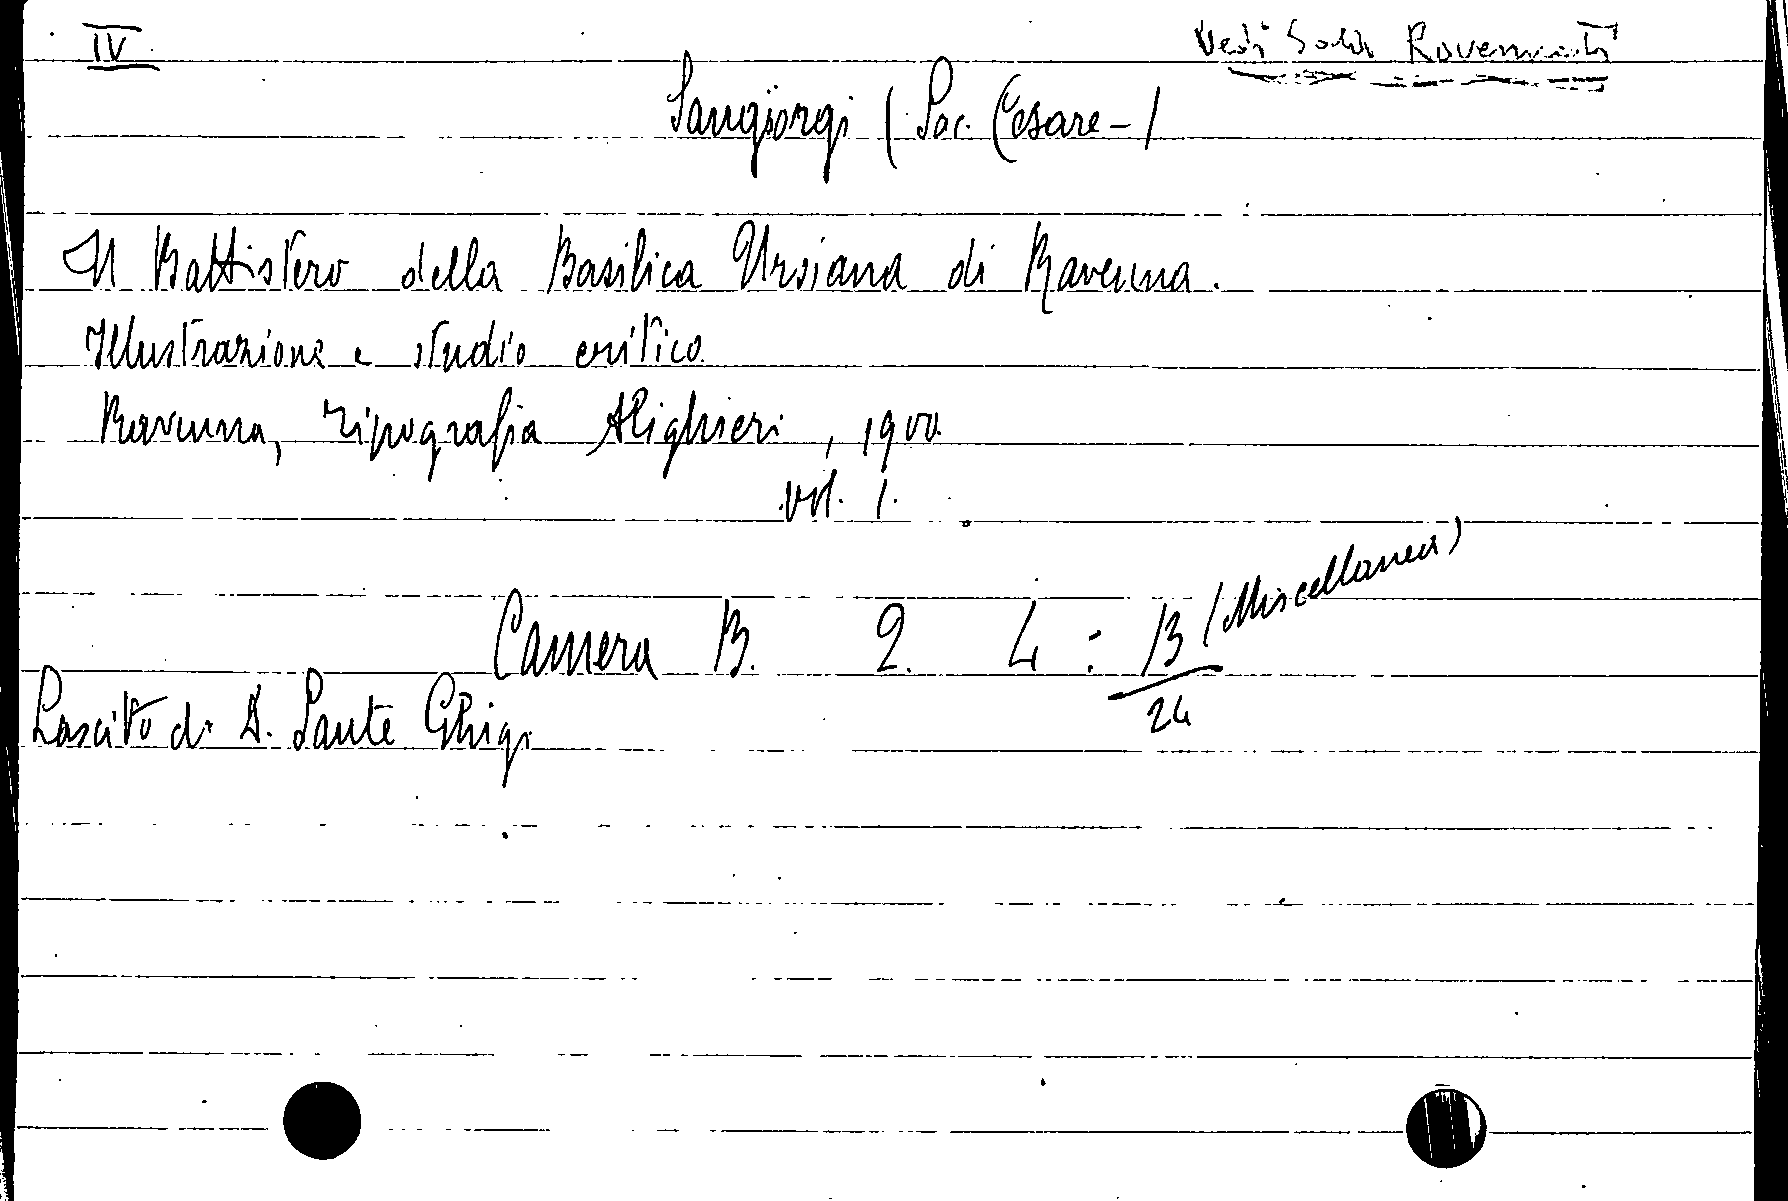 IV
Vedi Sala Ravennati
Sangiorgi (Sac. Cesare-)
Il Battistero della Basilica Ursiana di Ravenna.
Illustrazione e studio critico
Ravenna, Tipografia Alighieri, 1900.
vol. 1.
Camera B. 2. 4 : B/24 (Miscellanea)
Lascito di D. Sante Ghigi